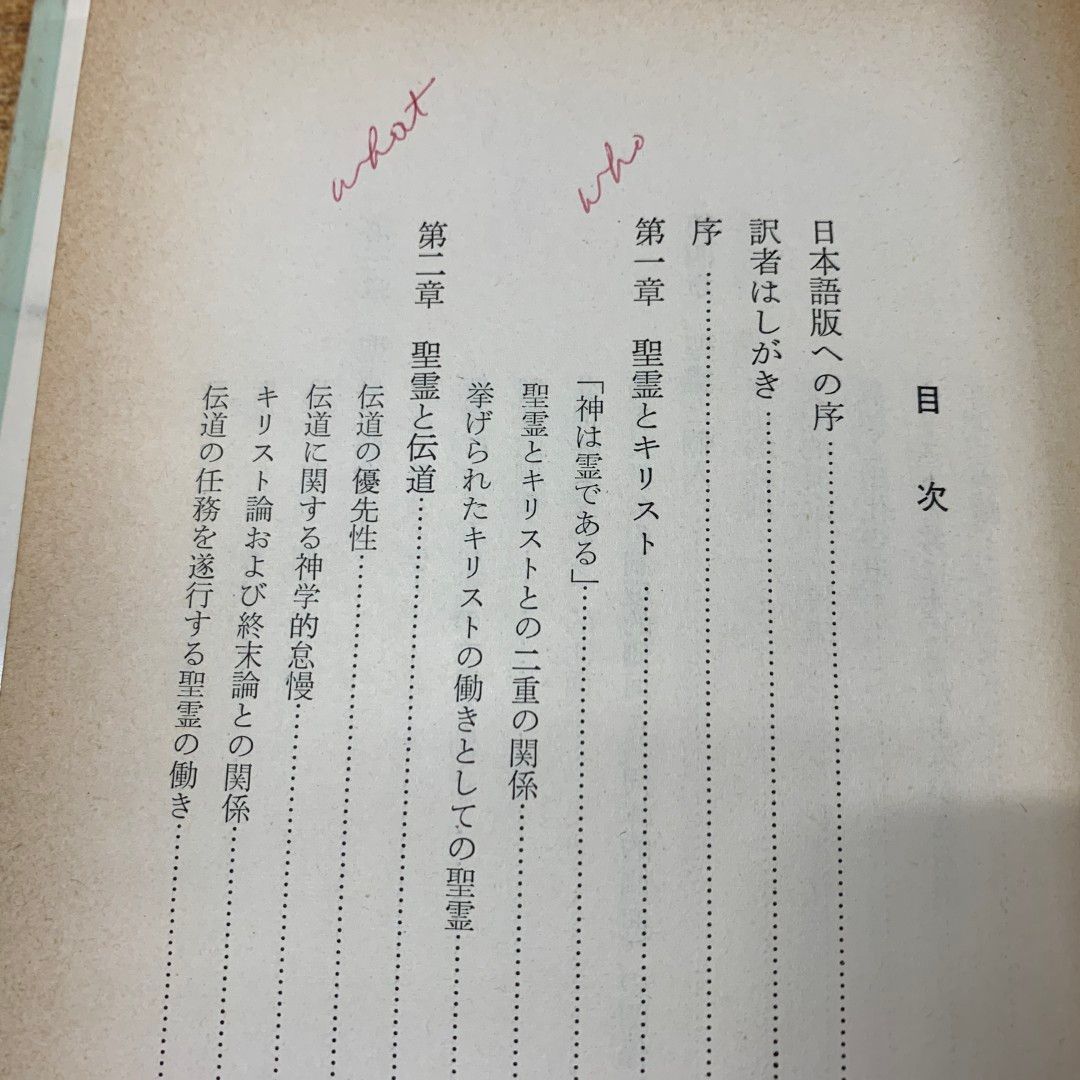 目次
日本語版への序
訳者はしがき
序
who
第一章 聖霊とキリスト
「神は霊である」
聖霊とキリストとの二重の関係
挙げられたキリストの働きとしての聖霊
what
第二章 聖霊と伝道
伝道の優先性
伝道に関する神学的怠慢
キリスト論および終末論との関係
伝道の任務を遂行する聖霊の働き